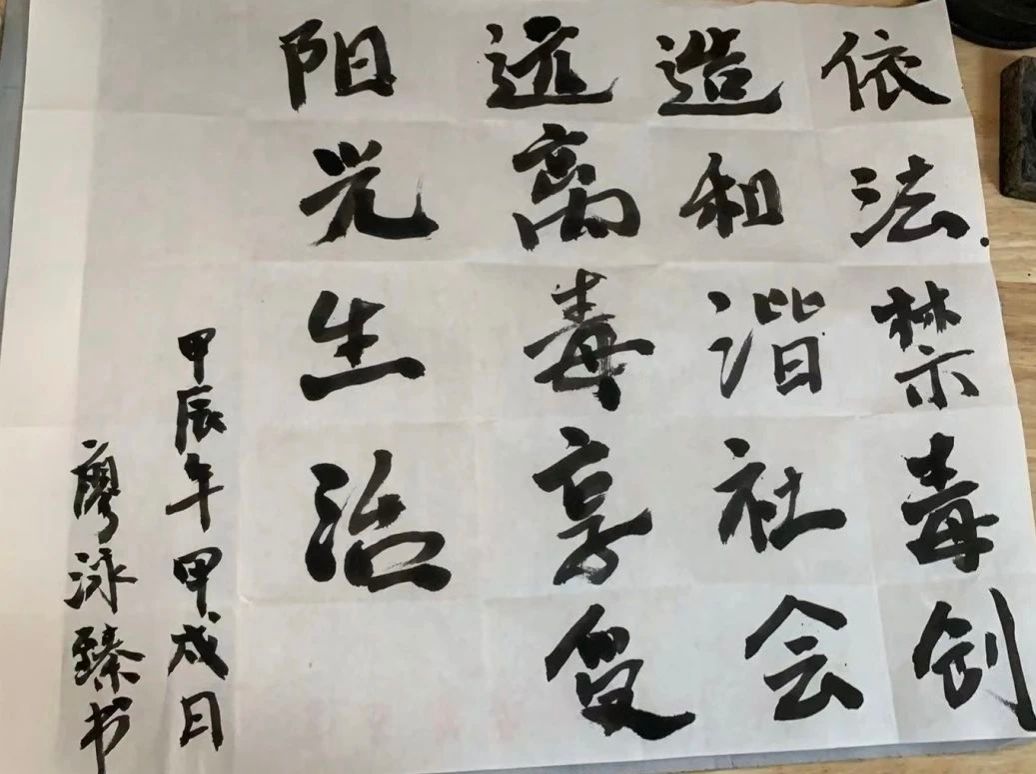 依法禁毒创
造和谐社会
远离毒享受
阳光生活
甲辰年甲戌日
廖泳臻书